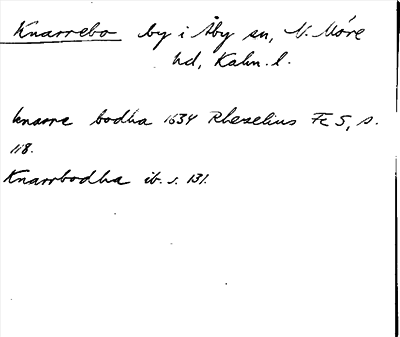 Knarrebo by i Åby sn, N. Möre
hd, Kalm. l.
knarre bodha 1634 Rhezelius Fc 5, s.
118.
Knarrbodha ib. s. 131.